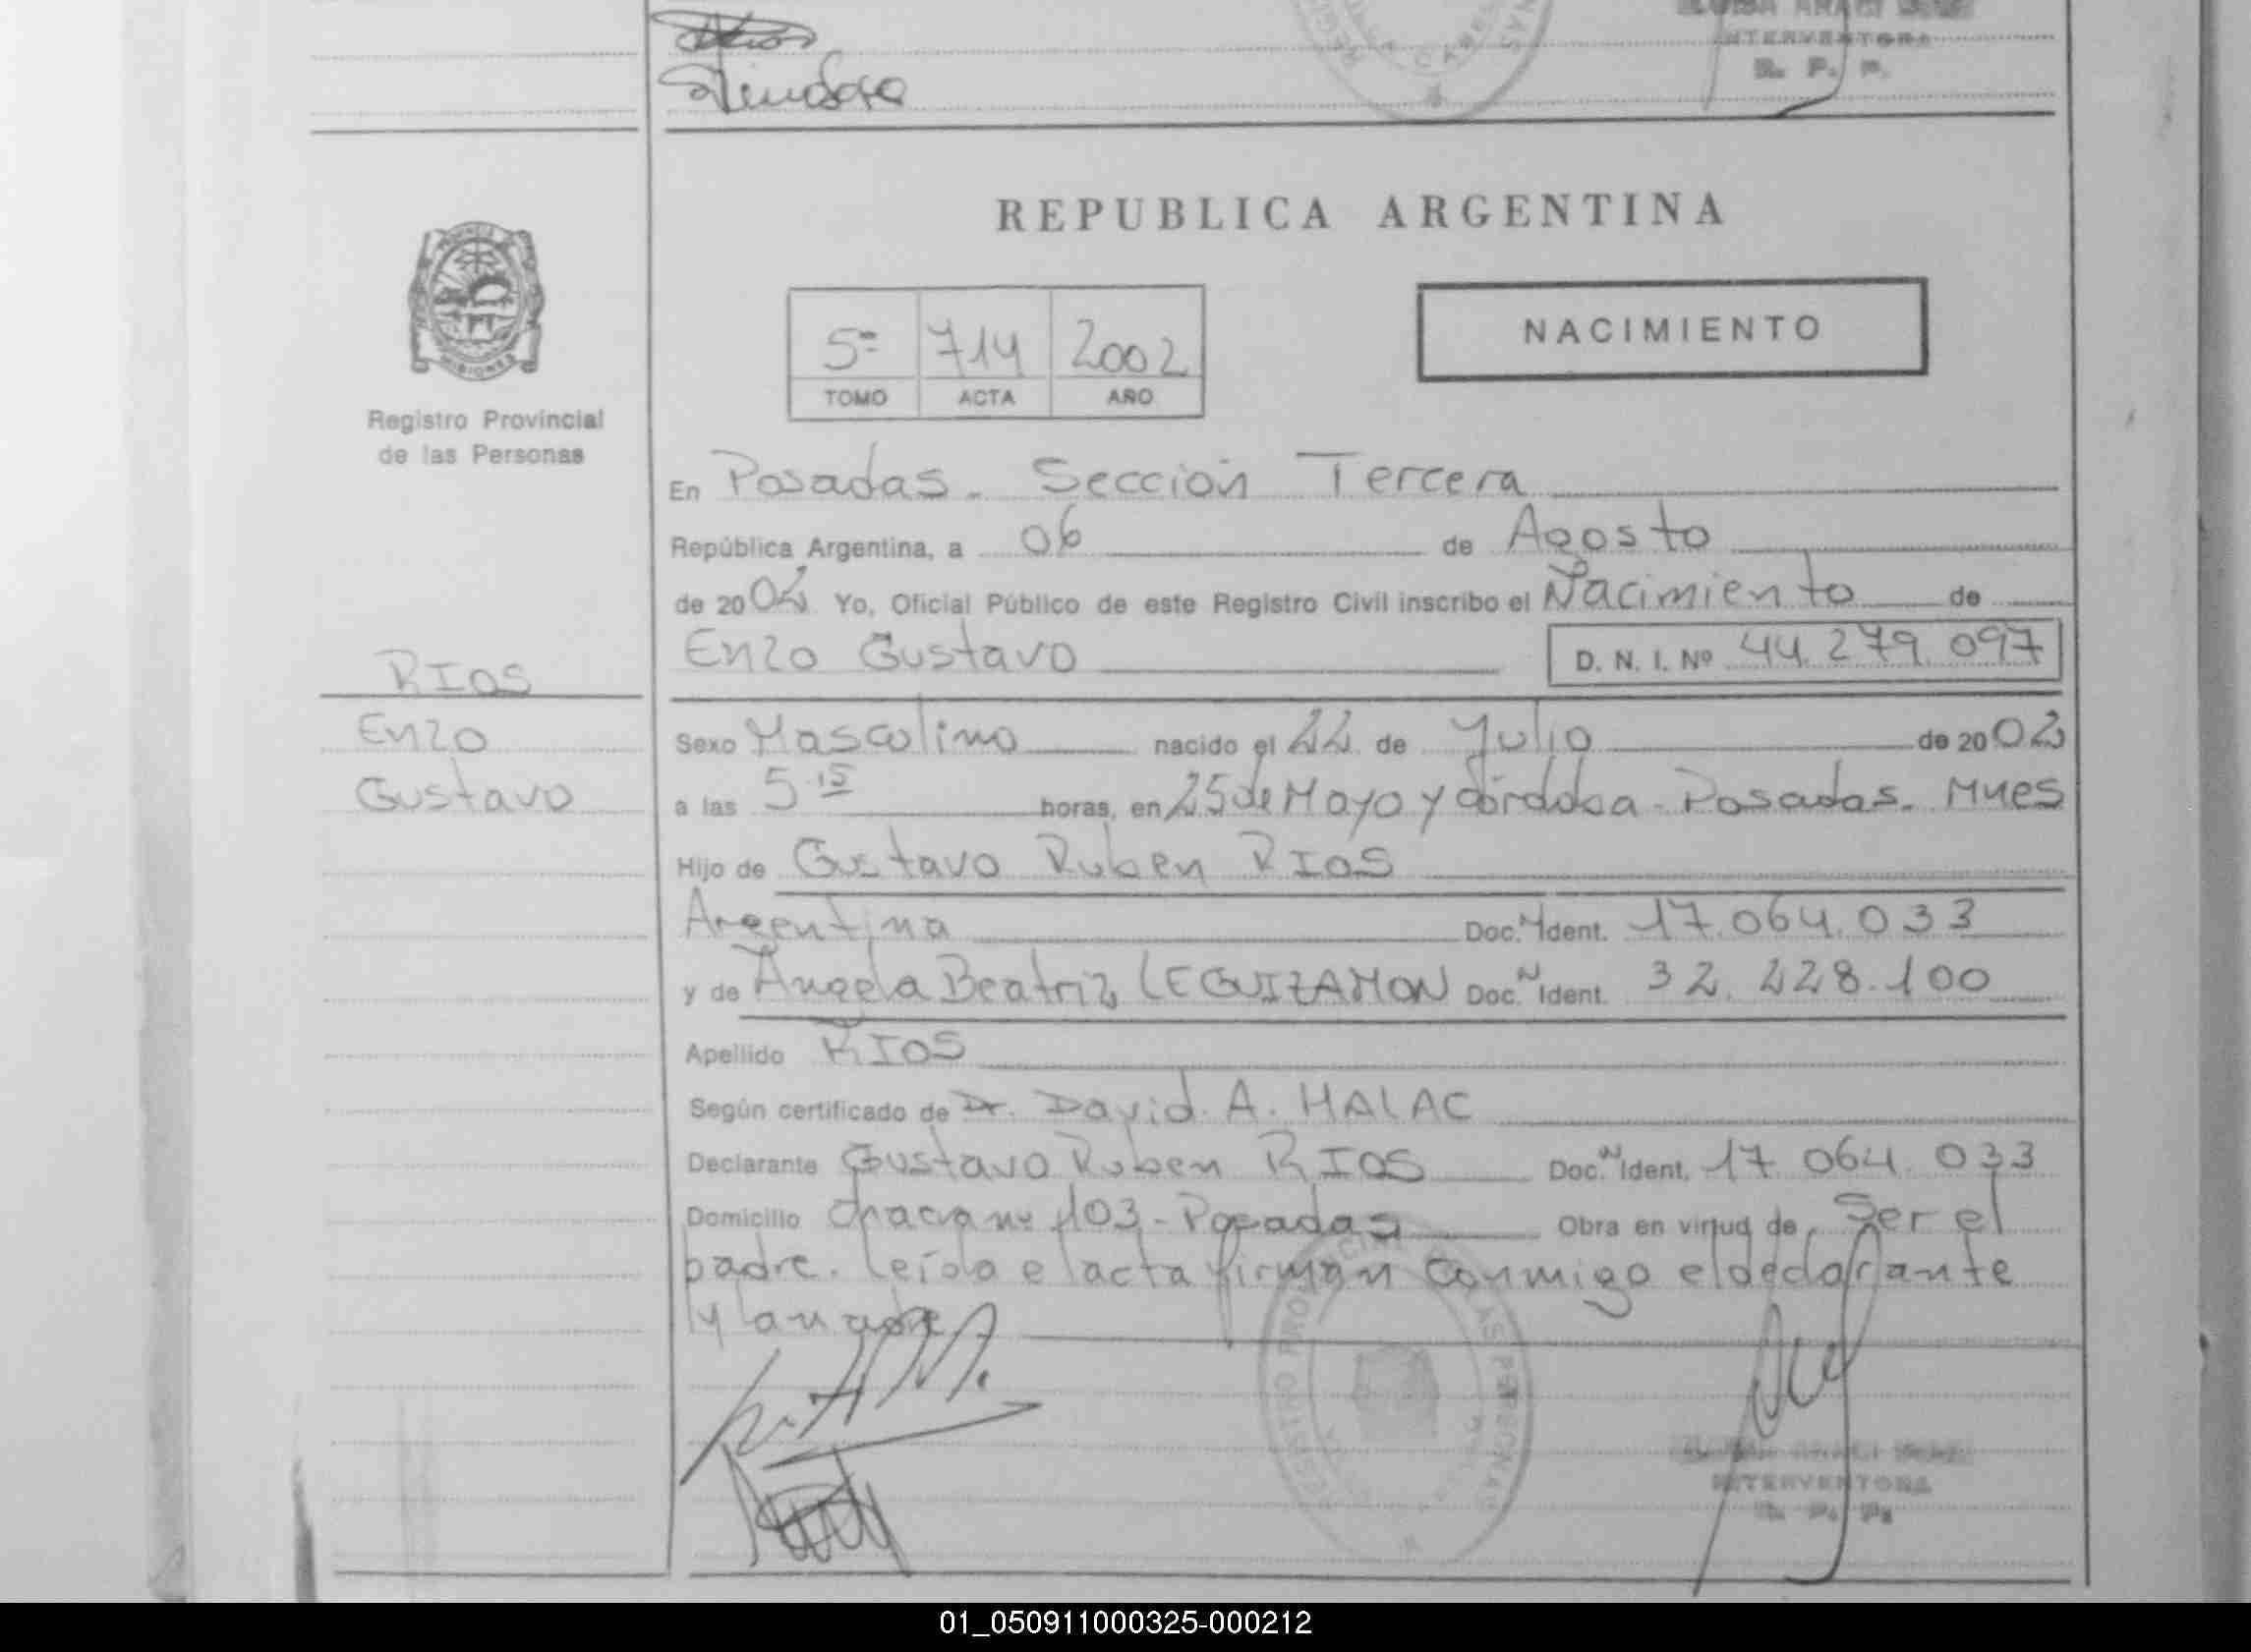 INTERVENTORA
R. P. P.
REPUBLICA ARGENTINA
PROVINCIA DE
MISIONES
Registro Provincial
de las Personas
5º 714 2002
TOMO ACTA AÑO
NACIMIENTO
En Posadas. Sección Tercera
República Argentina, a 06 de Agosto
de 2002 Yo, Oficial Público de este Registro Civil inscribo el Nacimiento de
RIOS
Enzo Gustavo D. N. I. Nº 44.279.097
Enzo
Gustavo
Sexo Masculino nacido el 22 de Julio de 2002
a las 5.15 horas, en 25 de Mayo y Córdoba - Posadas. Mnes
Hijo de Gustavo Ruben RIOS
Argentina Doc. N Ident. 17.064.033
y de Angela Beatriz LEGUIZAMON Doc. N Ident. 32.228.100
Apellido RIOS
Según certificado de Dr. David. A. HALAC
Declarante Gustavo Ruben RIOS Doc. N Ident. 17 064. 033
Domicilio Chacra nº 103 - Posadas Obra en virtud de Ser el
padre. leída el acta firman conmigo el declarante
y la madre
REGISTRO PROVINCIAL DE LAS PERSONAS
INTERVENTORA
R. P. P.
01_050911000325-000212